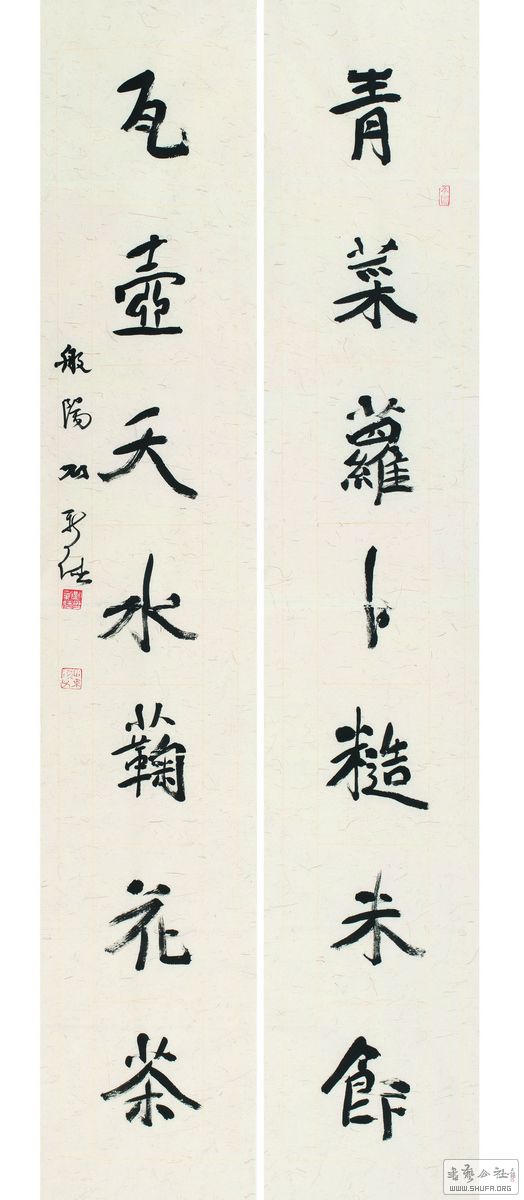 青菜蘿卜糙米飰
瓦壺天水蘜花茶
般陽
書藝公社
WWW.SHUFA.ORG